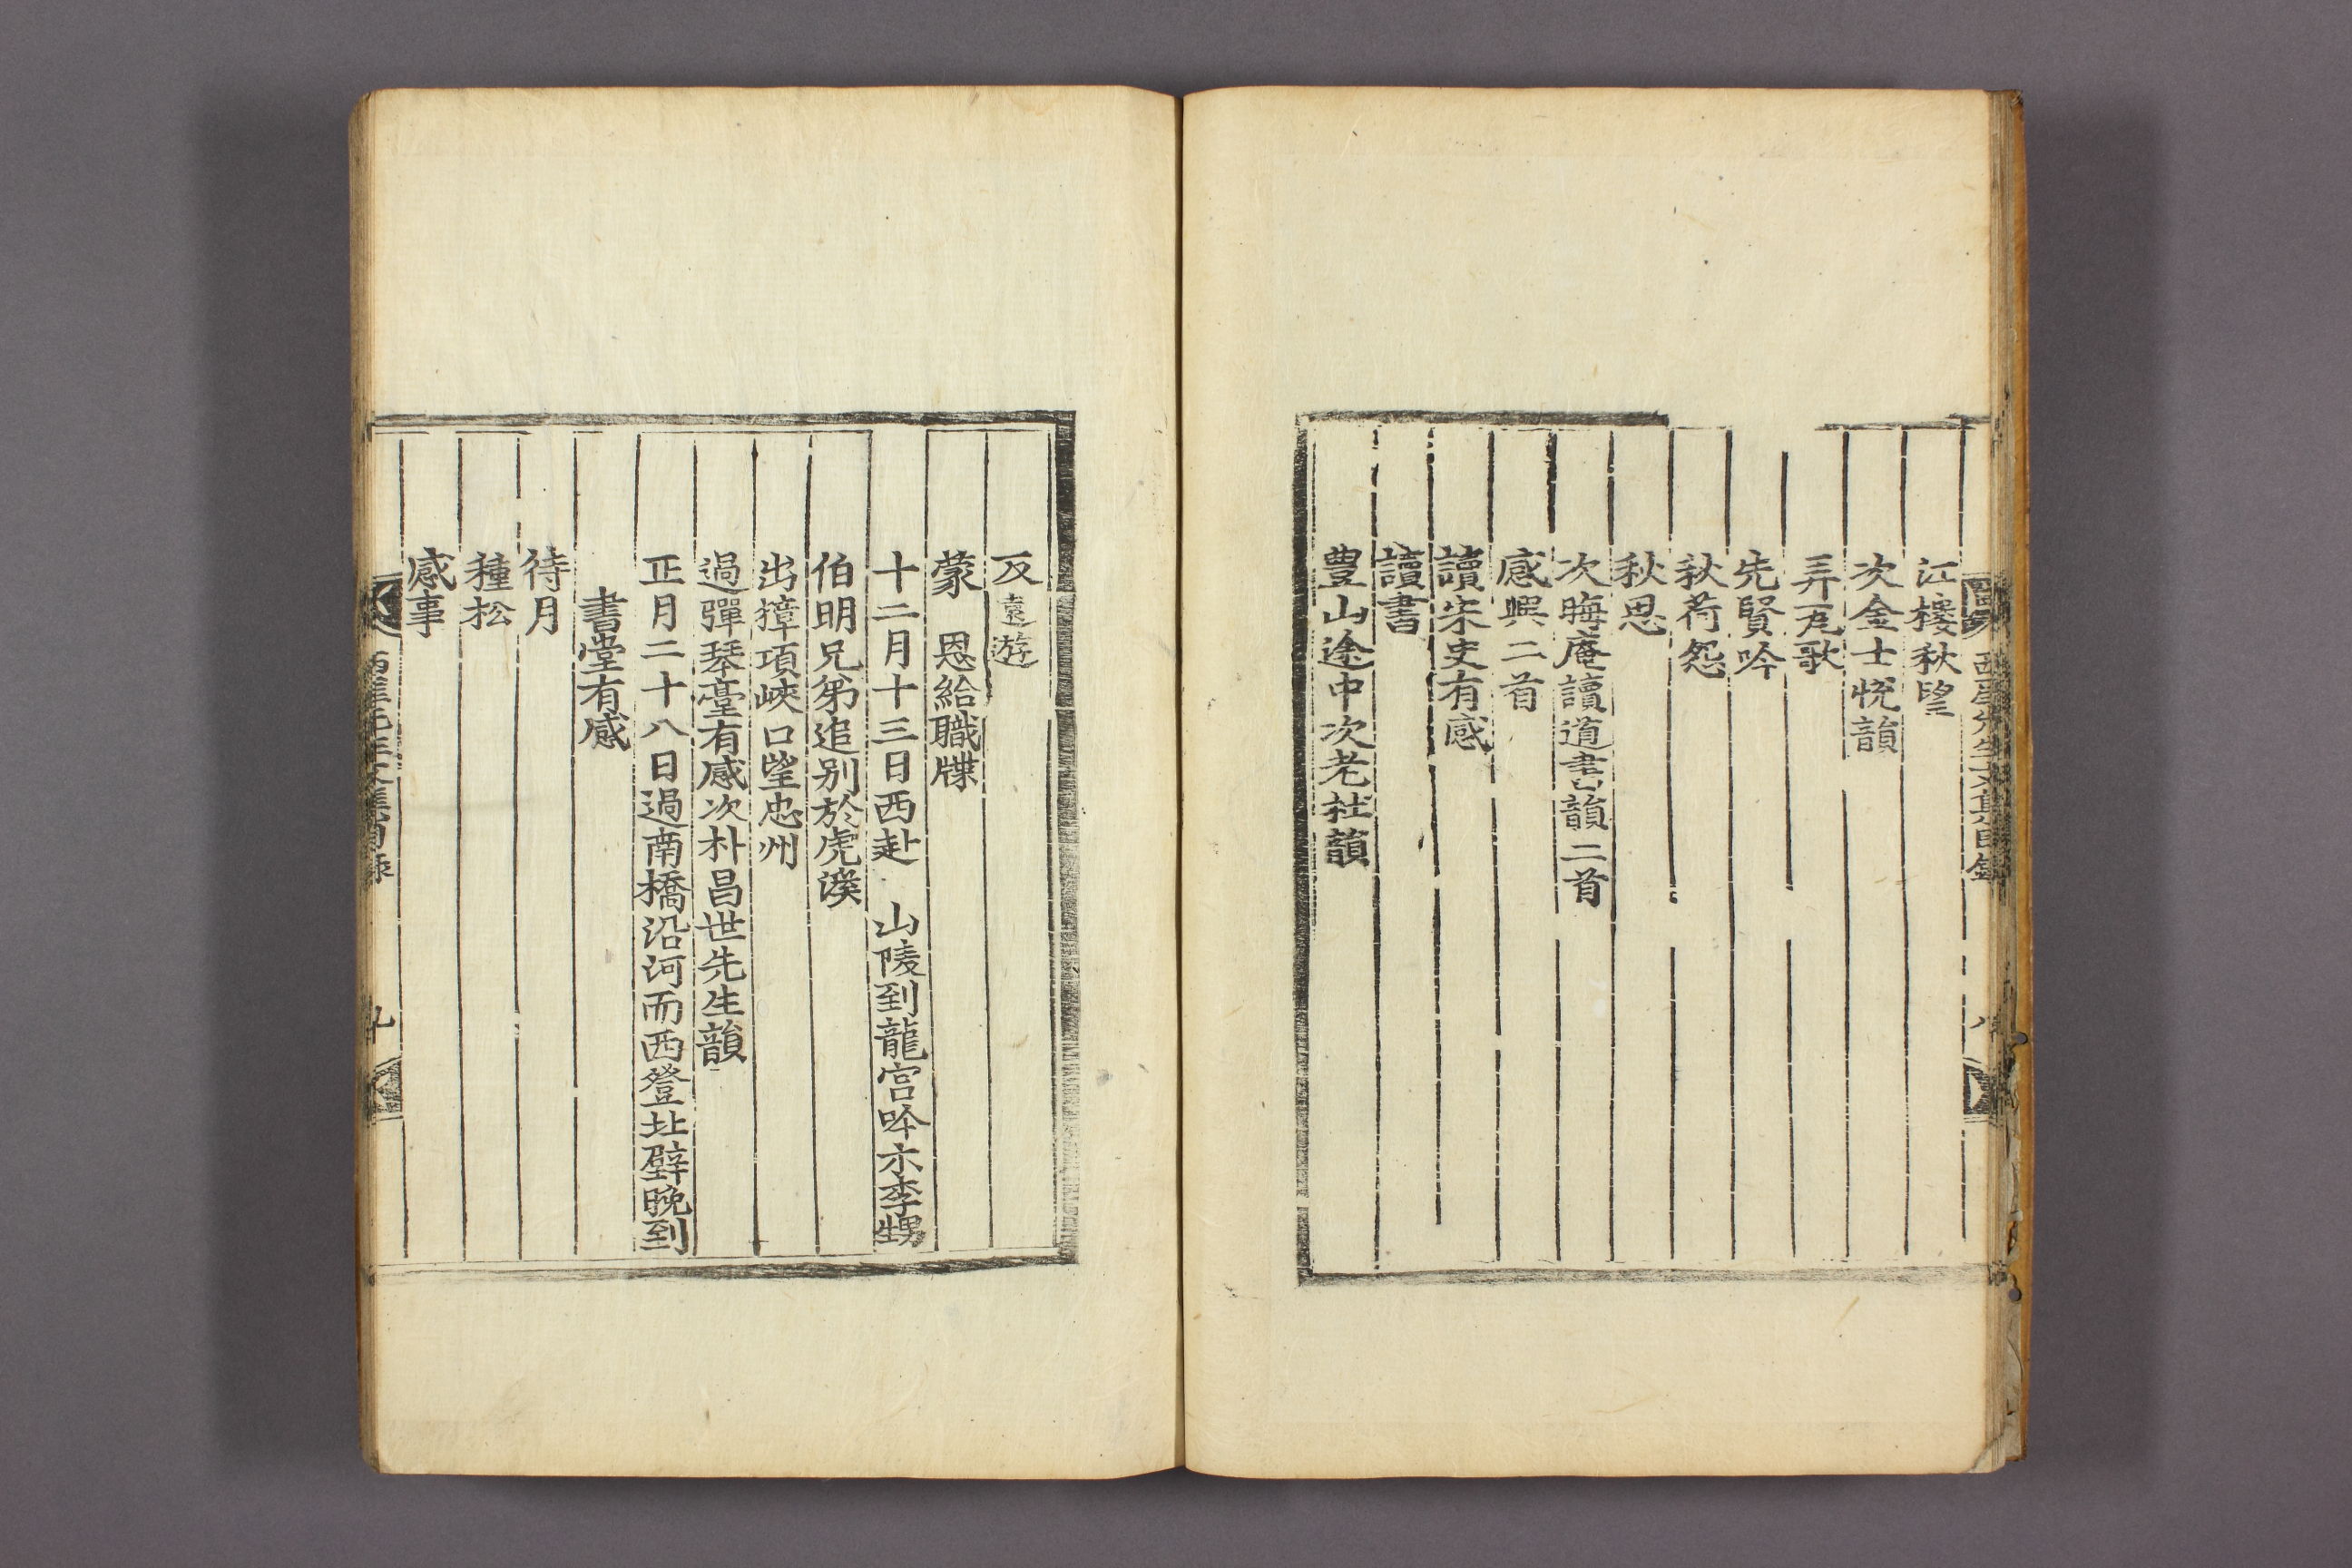 西厓先生文集目錄 八
江樓秋望
次金士悅韻
弄瓦歌
先賢吟
秋荷怨
秋思
次晦庵讀道書韻二首
感興二首
讀宋史有感
讀書
豊山途中次老杜韻
反遠遊
蒙 恩給職牒
十二月十三日西赴 山陵到龍宮吟示李甥
伯明兄弟追别於虎溪
出獐項峽口望忠州
過彈琴臺有感次朴昌世先生韻
正月二十八日過南橋沿河而西登北壁晩到
書堂有感
待月
種松
感事
西厓先生文集目錄 九